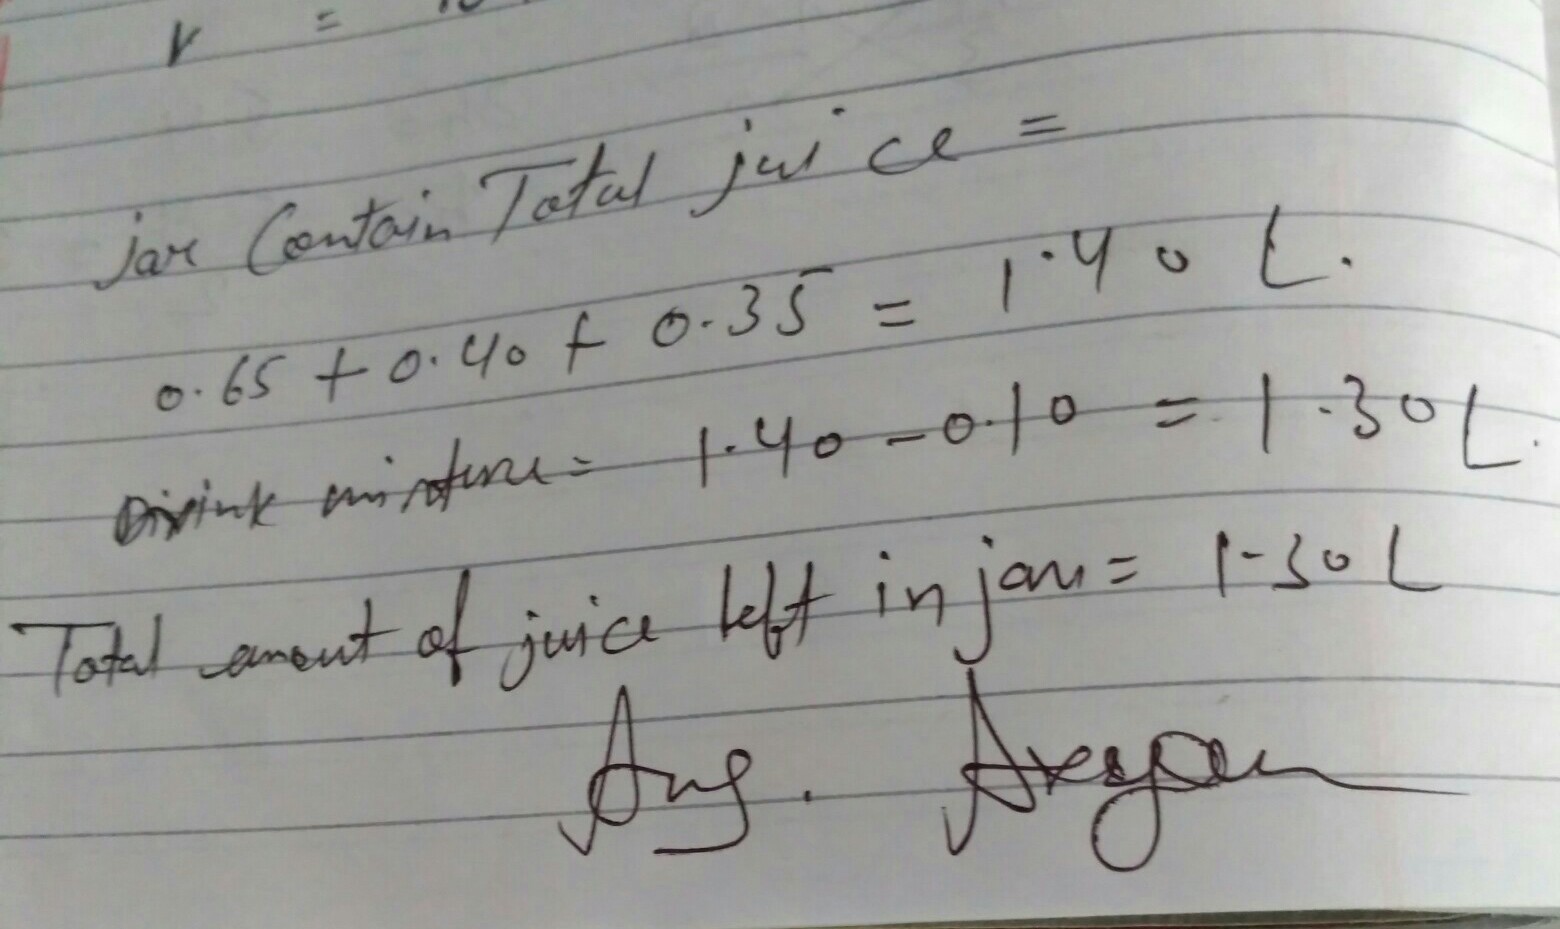 V =
jar Contain Total juice =
0.65 + 0.40 + 0.35 = 1.40 L.
Drink mixture = 1.40 - 0.10 = 1.30 L.
Total amout of juice left in jar = 1.30 L
Ans.